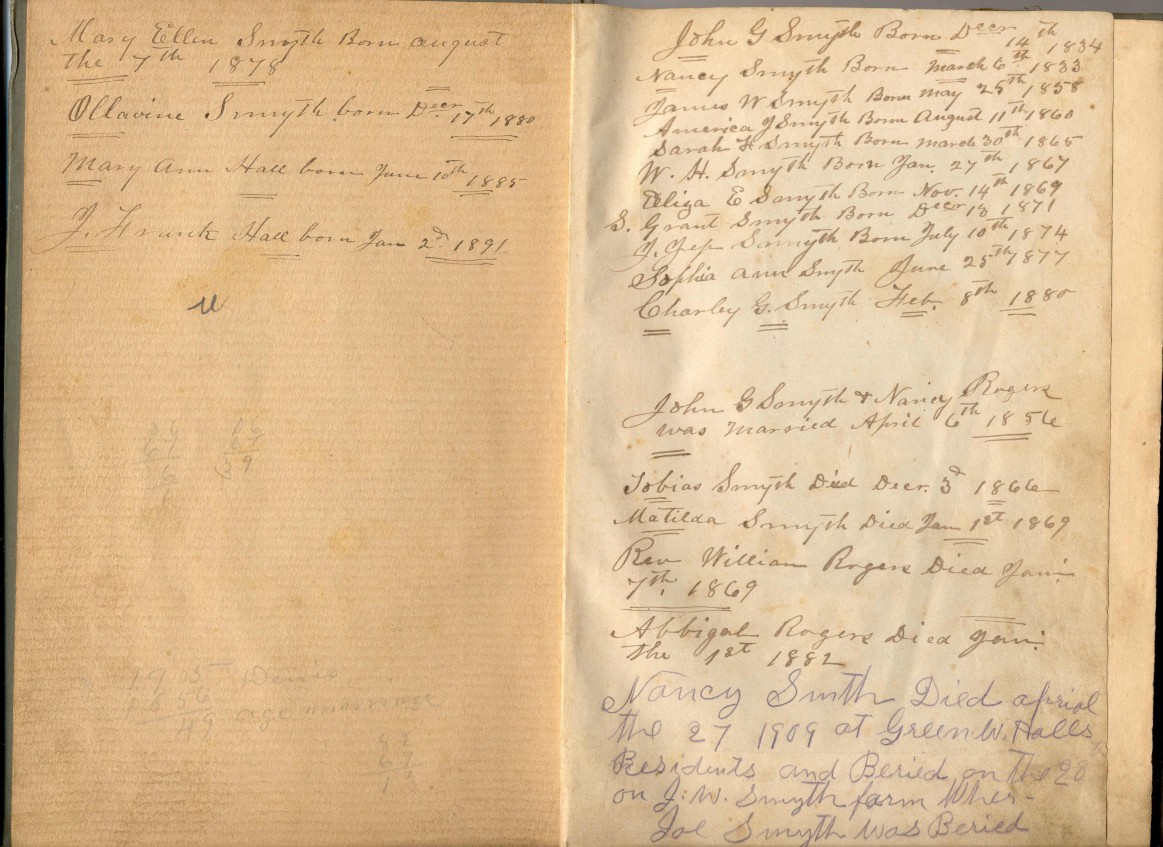 Mary Ellen Smyth Born august
the 7th 1878
Ollavine Smyth born Decr 17th 1880
Mary Ann Hall born June 10th 1885
J. Frank Hall born Jan 2d 1891
1905
1856
49 age marrage
82
67
John G Smyth Born Decr 14th 1834
Nancy Smyth Born March 6th 1833
James W Smyth Born May 25th 1858
America J Smyth Born August 11th 1860
Sarah F Smyth Born march 30th 1865
W. H. Smyth Born Jan. 27th 1867
Eliza E Smyth Born Nov. 14th 1869
S. Grant Smyth Born Decr 18 1871
J. Jep Smyth Born July 10th 1874
Sophia Ann Smyth June 25th 1877
Charley G. Smyth Feb. 8th 1880
John G Smyth & Nancy Rogers
was Married April 6th 1856
Tobias Smyth Died Decr. 3d 1866
Matilda Smyth Died Jan 1st 1869
Rev William Rogers Died Jan:
7th, 1869
Abbigal Rogers Died Jan:
the 1st 1882
Nancy Smth Died aprial
the 27 1909 at Green W. Halls
Residents and Beried on the 28
on J. W. Smyth farm Wher-
Joe Smyth was Beried